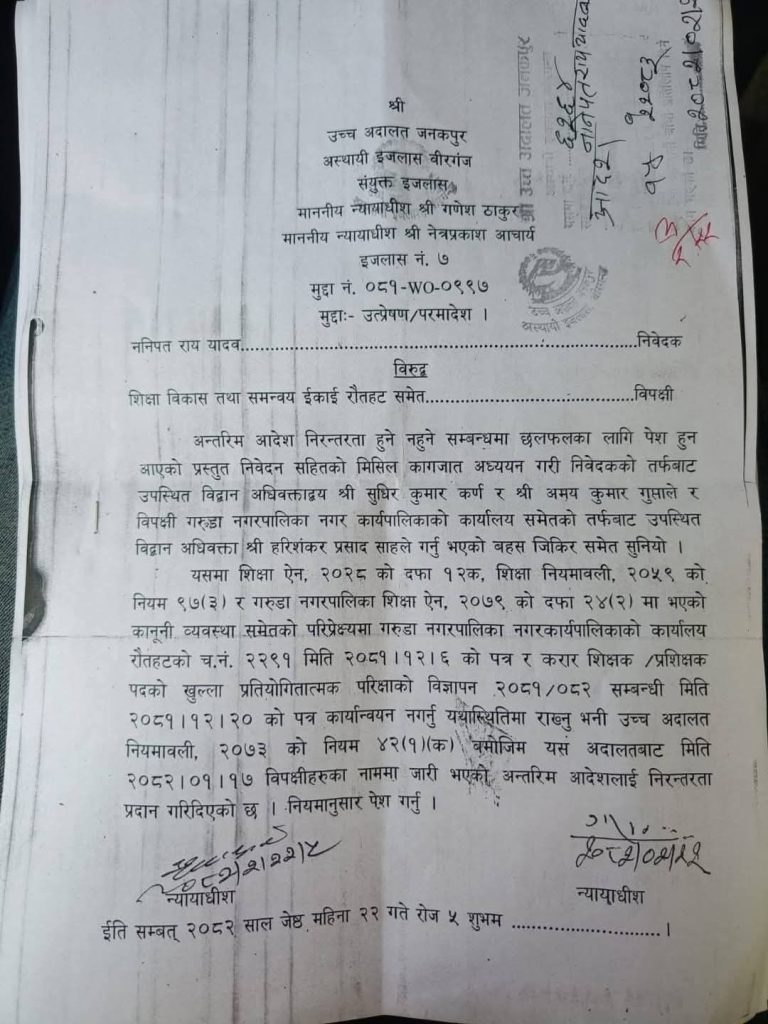 श्री
उच्च अदालत जनकपुर
अस्थायी इजलास वीरगंज
संयुक्त इजलास
माननीय न्यायाधीश श्री गणेश ठाकुर
माननीय न्यायाधीश श्री नेत्रप्रकाश आचार्य
इजलास नं. ७
मुद्दा नं. ०८१-WO-०९९७
मुद्दाः- उत्प्रेषण/परमादेश ।
ननिपत राय यादव....................................................................निवेदक
विरुद्ध
शिक्षा विकास तथा समन्वय ईकाई रौतहट समेत....................................विपक्षी
अन्तरिम आदेश निरन्तरता हुने नहुने सम्बन्धमा छलफलका लागि पेश हुन
आएको प्रस्तुत निवेदन सहितको मिसिल कागजात अध्ययन गरी निवेदकको तर्फबाट
उपस्थित विद्वान अधिवक्ताद्वय श्री सुधिर कुमार कर्ण र श्री अमय कुमार गुप्ताले र
विपक्षी गरुडा नगरपालिका नगर कार्यपालिकाको कार्यालय समेतको तर्फबाट उपस्थित
विद्वान अधिवक्ता श्री हरिशंकर प्रसाद साहले गर्नु भएको बहस जिकिर समेत सुनियो ।
यसमा शिक्षा ऐन, २०२८ को दफा १२क, शिक्षा नियमावली, २०५९ को
नियम ९७(३) र गरुडा नगरपालिका शिक्षा ऐन, २०७९ को दफा २४(२) मा भएको
कानूनी व्यवस्था समेतको परिप्रेक्ष्यमा गरुडा नगरपालिका नगरकार्यपालिकाको कार्यालय
रौतहटको च.नं. २२९१ मिति २०८१।१२।६ को पत्र र करार शिक्षक /प्रशिक्षक
पदको खुल्ला प्रतियोगितात्मक परिक्षाको विज्ञापन २०८१/०८२ सम्बन्धी मिति
२०८१।१२।२० को पत्र कार्यान्वयन नगर्नु यथास्थितिमा राख्नु भनी उच्च अदालत
नियमावली, २०७३ को नियम ४२(१)(क) बमोजिम यस अदालतबाट मिति
२०८२।०१।१७ विपक्षीहरुका नाममा जारी भएको अन्तरिम आदेशलाई निरन्तरता
प्रदान गरिदिएको छ । नियमानुसार पेश गर्नु ।
२०८२।२।२२।५
२०८२।०२।२२
न्यायाधीश
न्यायाधीश
ईति सम्बत् २०८२ साल जेष्ठ महिना २२ गते रोज ५ शुभम ......................।